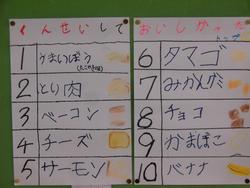 くんせいして
1 うまいぼう
2 とり肉
3 ベーコン
4 チーズ
5 サーモン
おいしかった
6 タマゴ
7 みかんグミ
8 チョコ
9 かまぼこ
10 バナナ